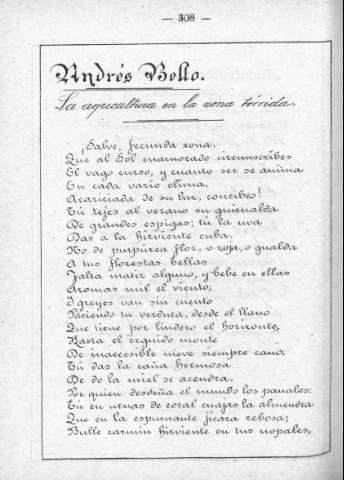 — 308 —
Andrés Bello.
La agricultura en la zona tórrida.
¡Salve, fecunda zona.
Que al Sol enamorado circunscribes
El vago curso, y cuanto ser se anima
En cada vario clima,
Acariciada de su luz, concibes!
Tú tejes al verano su guirnalda
De grandes espigas; tú la uva
Das a la hirviente cuba.
No de purpúrea flor, o roja, o gualda
A tus florestas bellas
Falta matiz alguno, y bebe en ellas
Aromas mil el viento;
I greyes van sin cuento
Paciendo tu verdura, desde el llano
Que tiene por lindero el horizonte,
Hasta el erguido monte
De inaccesible nieve siempre cano,
Tú das la caña hermosa
De do la miel se acendra,
Por quien desdeña el mundo los panales:
Tú en urnas de coral cuajas la almendra
Que en la espumante jícara rebosa;
Bulle carmín hirviente en tus nopales,